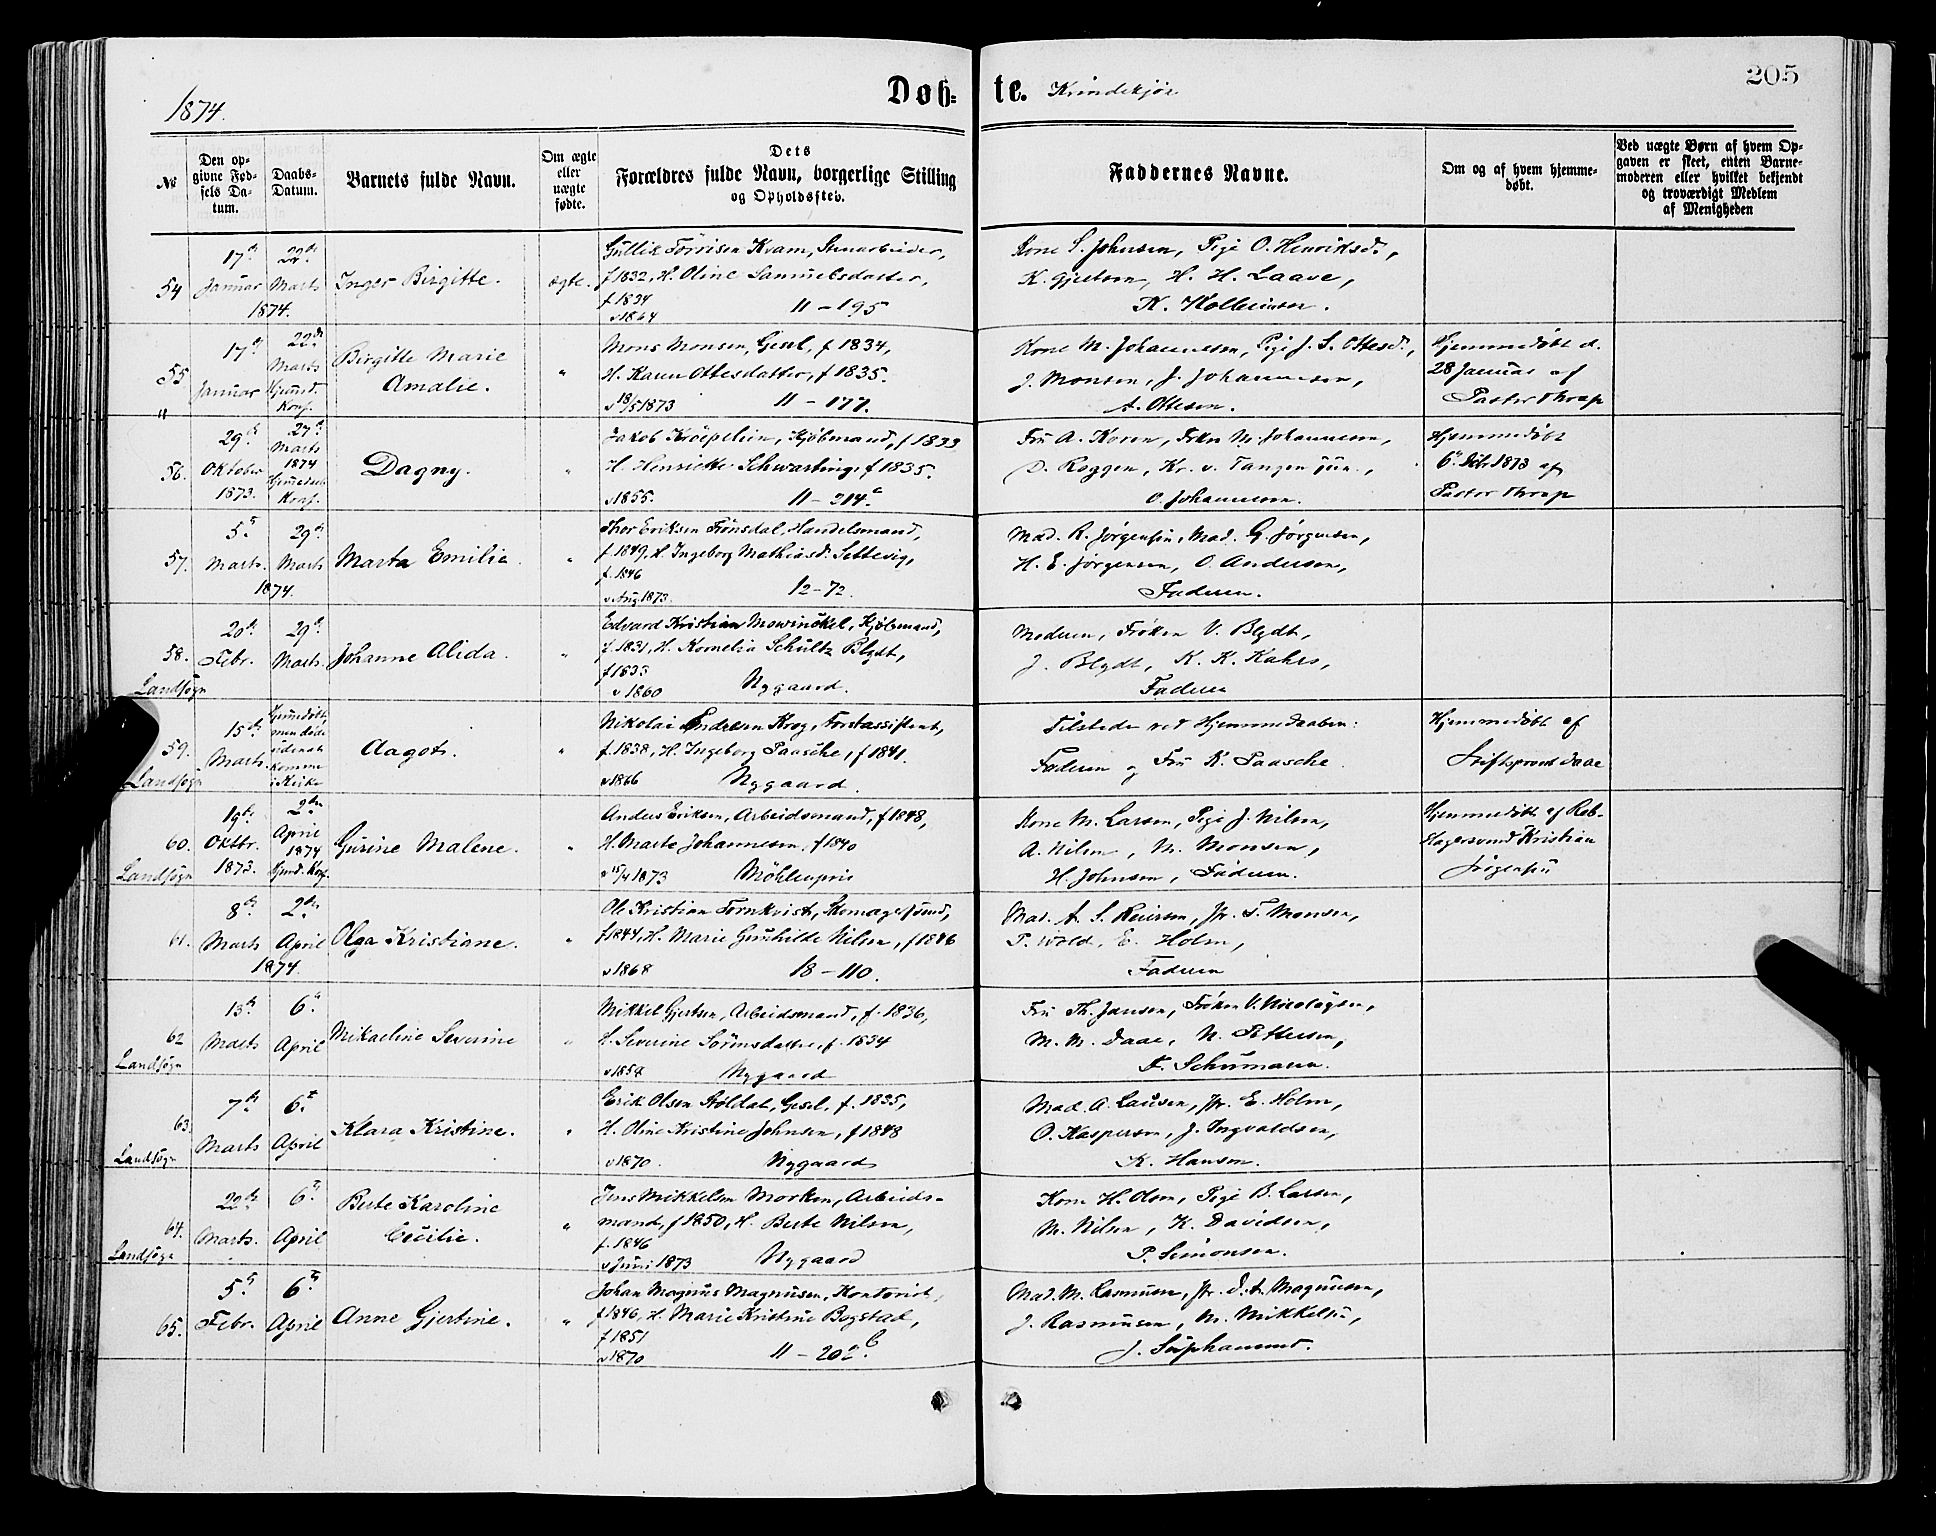 1874.
Døb-te. Kvindekjøn
205
№
Den opgivne Fødsels Datum.
Daabs-Datum.
Barnets fulde Navn.
Om ægte eller uægte fødte.
Dets Forældres fulde Navn, borgerlige Stilling og Opholdssted.
Faddernes Navne.
Om og af hvem hjemmedøbt.
Ved uægte Børn af hvem Opgaven er skeet, enten Barnemoderen eller hvilket bekjendt og troværdigt Medlem af Menigheden
54
17de Januar
22de Marts
1874.
Inger Birgitte.
ægte.
Gullik Torrisen Kvam, Stenarbeider,
f 1832, H. Oline Samuelsdatter,
f 1834
v 1864 11-195
Kone S. Johnsen, Pige O. Henriksd.,
K. Gjertsen, H. H. Laave,
K.
55
17de Januar
22de Marts
Birgitte Marie
Amalie.
"
Mons Monsen, Gesel, f 1834,
H. Karen Ottesdatter, f 1835.
v 18/5 1873 11-177.
Kone M. Johannesen, Pige J. S. Ottesd.,
J. Monsen, J. Johannesen,
A. Ottesen.
Hjemmedøbt d.
28 Januar af
Pastor Thrap
56.
29de Oktober 1873.
27de Marts 1874
Dagny.
"
Jakob Kroepelien, Kjøbmand, f 1833
H. Henriette Schwarting, f 1835.
v 1855. 11-214c
Fru A. Koren, Frkn M. Johannesen,
D. Roggen, Kr. v. Tangen jun.,
O. Johannesen.
Hjemmedøbt
6te Debr 1873 af
Pastor Thrap
57.
5te Marts
29de Marts
1874.
Marta Emilie.
"
Thor Eriksen Frønsdal, Handelsmand,
f 1849, H. Ingeborg Mathiasd. Settevig,
f. 1846
v Aug 1873. 12-72.
Mad. R. Jørgensen, Mad. G. Jørgensen,
H. E. Jørgensen, O. Andersen,
Faderen.
58.
Landsogn
20de Febr.
29de Marts.
Johanne Alida.
"
Edvard Kristian Mowinckel, Kjøbmand,
f. 1831, H. Kornelia Schultz Blydt,
f 1833
v 1860 Nygaard.
Moderen, Frøken V. Blydt,
J. Blydt, K. K. Kahrs,
Faderen
59.
Landsogn
15de Marts.
Hjemmedøbt, men døde uden at komme i Kirke
Aagot.
"
Nikolai Endresen Krog, Forstassistent,
f. 1838, H. Ingeborg Paasche, f 1841.
v 1866 Nygaard.
Tilstede ved Hjemmedaaben:
Faderen og Fru K. Paasche.
Hjemmedøbt af
Stiftsprovst Daae
60.
Landsogn
19de Oktbr. 1873.
2den April 1874
Gurine Malene.
"
Anders Eriksen, Arbeidsmand, f 1848,
H. Marte Johannesen, f 1840
v 15/4 1873 Møhlenpris
Kone M. Larsen, Pige J. Nilsen,
A. Nilsen, M. Monsen,
H. Johnsen, Faderen.
Hjemmedøbt af Rebslagersvend Kristian
Jørgensen
61.
8de Marts
2den April
1874.
Olga Kristiane.
"
Ole Kristian Tornkvist, Skomagersvend,
f 1844, H. Marie Gunhilde Nilsen, f 1846
v 1868 18-110.
Mad. A. S. Reiersen, Jfr. T. Monsen,
P. Wold, E. Holm,
Faderen
62
Landsogn
13de Marts
6te April
Mikaeline Severine
"
Mikkel Gjertsen, Arbeidsmand, f. 1836,
H. Severine Sørensdatter, f. 1834
v 1859 Nygaard
Fru Th. Jansen, Frøken V. Nicolaysen,
M. M. Daae, N. Pettersen,
F. Schumann.
63.
Landsogn
7de Marts
6te April
Klara Kristine.
"
Erik Olsen Aaldal, Gesel, f. 1835,
H. Oline Kristine Johnsen, f 1848
v 1870. Nygaard
Mad. A. Lausen, Jfr. E. Holm,
O. Kaspersen, J. Ingvaldsen,
K. Hansen.
64.
Landsogn
22de Marts.
6te April
Berte Karoline
Cecilie.
"
Jens Mikkelsen Morken, Arbeidsmand, f 1850, H. Berte Nilsen,
f. 1846
v Juni 1873 Nygaard
Kone H. Olsen, Pige B. Larsen,
M. Nilsen, K. Davidsen,
P. Simonsen.
65.
5te Febr.
6te April
Anne Gjertine.
"
Johan Magnus Magnusen, Kontorist,
f 1846, H. Marie Kristine Bogstad,
f 1851
v 1870 11-20
Mad. M. Rasmusen, Jfr. D. A. Magnusen,
J. Rasmusen, M. Mikkelsen,
J.